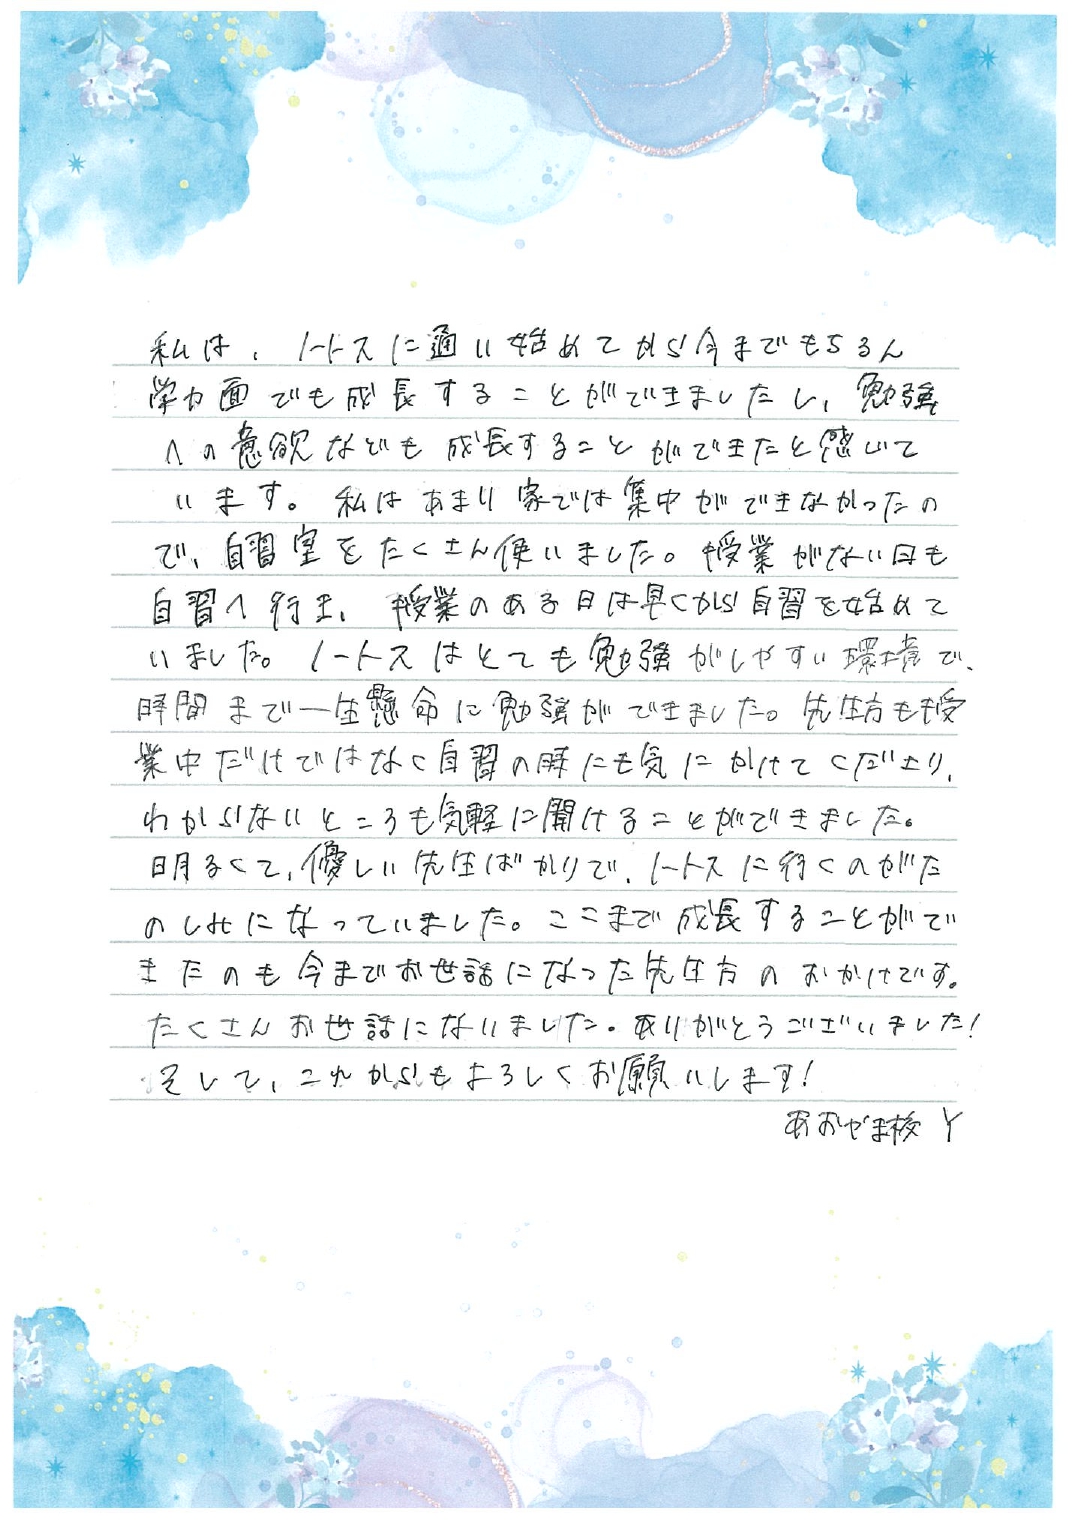 私は、ノートスに通い始めてから今までもちろん
学力面でも成長することができましたし、勉強
への意欲なども成長することができたと感じて
います。私はあまり家では集中ができなかったの
で、自習室をたくさん使いました。授業がない日も
自習へ行き、授業のある日は早くから自習を始めて
いました。ノートスはとても勉強がしやすい環境で、
時間まで一生懸命に勉強ができました。先生方も授
業中だけではなく自習の時にも気にかけてくださり、
わからないところも気軽に聞けることができました。
明るくて、優しい先生ばかりで、ノートスに行くのがた
のしみになっていました。ここまで成長することがで
きたのも今までお世話になった先生方のおかけです。
たくさんお世話にないました。ありがとうございました!
そして、これからもよろしくお願いします!
あおやま校 Y